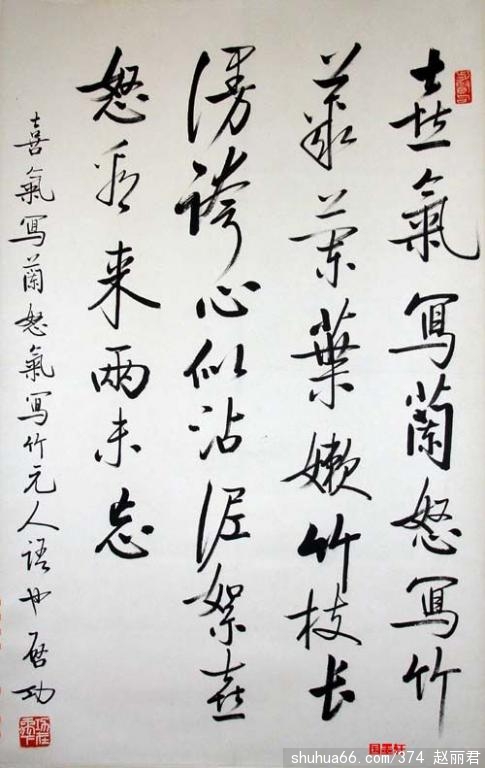 喜氣寫蘭怒寫竹
藂蘭葉嫩竹枝长
漫誇心似沾泥絮喜
怒看来兩未忘
喜氣寫蘭怒氣寫竹元人語也启功
国墨轩
shuhua66.com/374 赵丽君